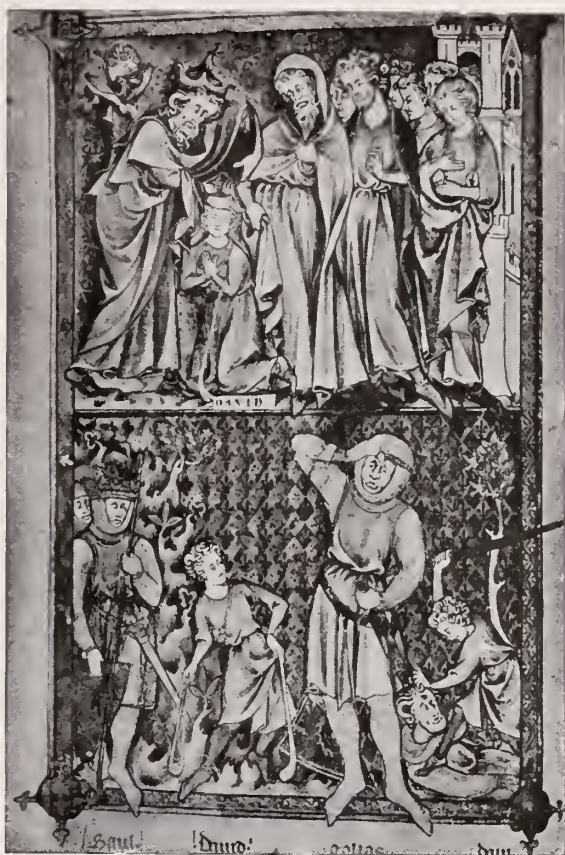 DAVID
Saul Dauid golias daui